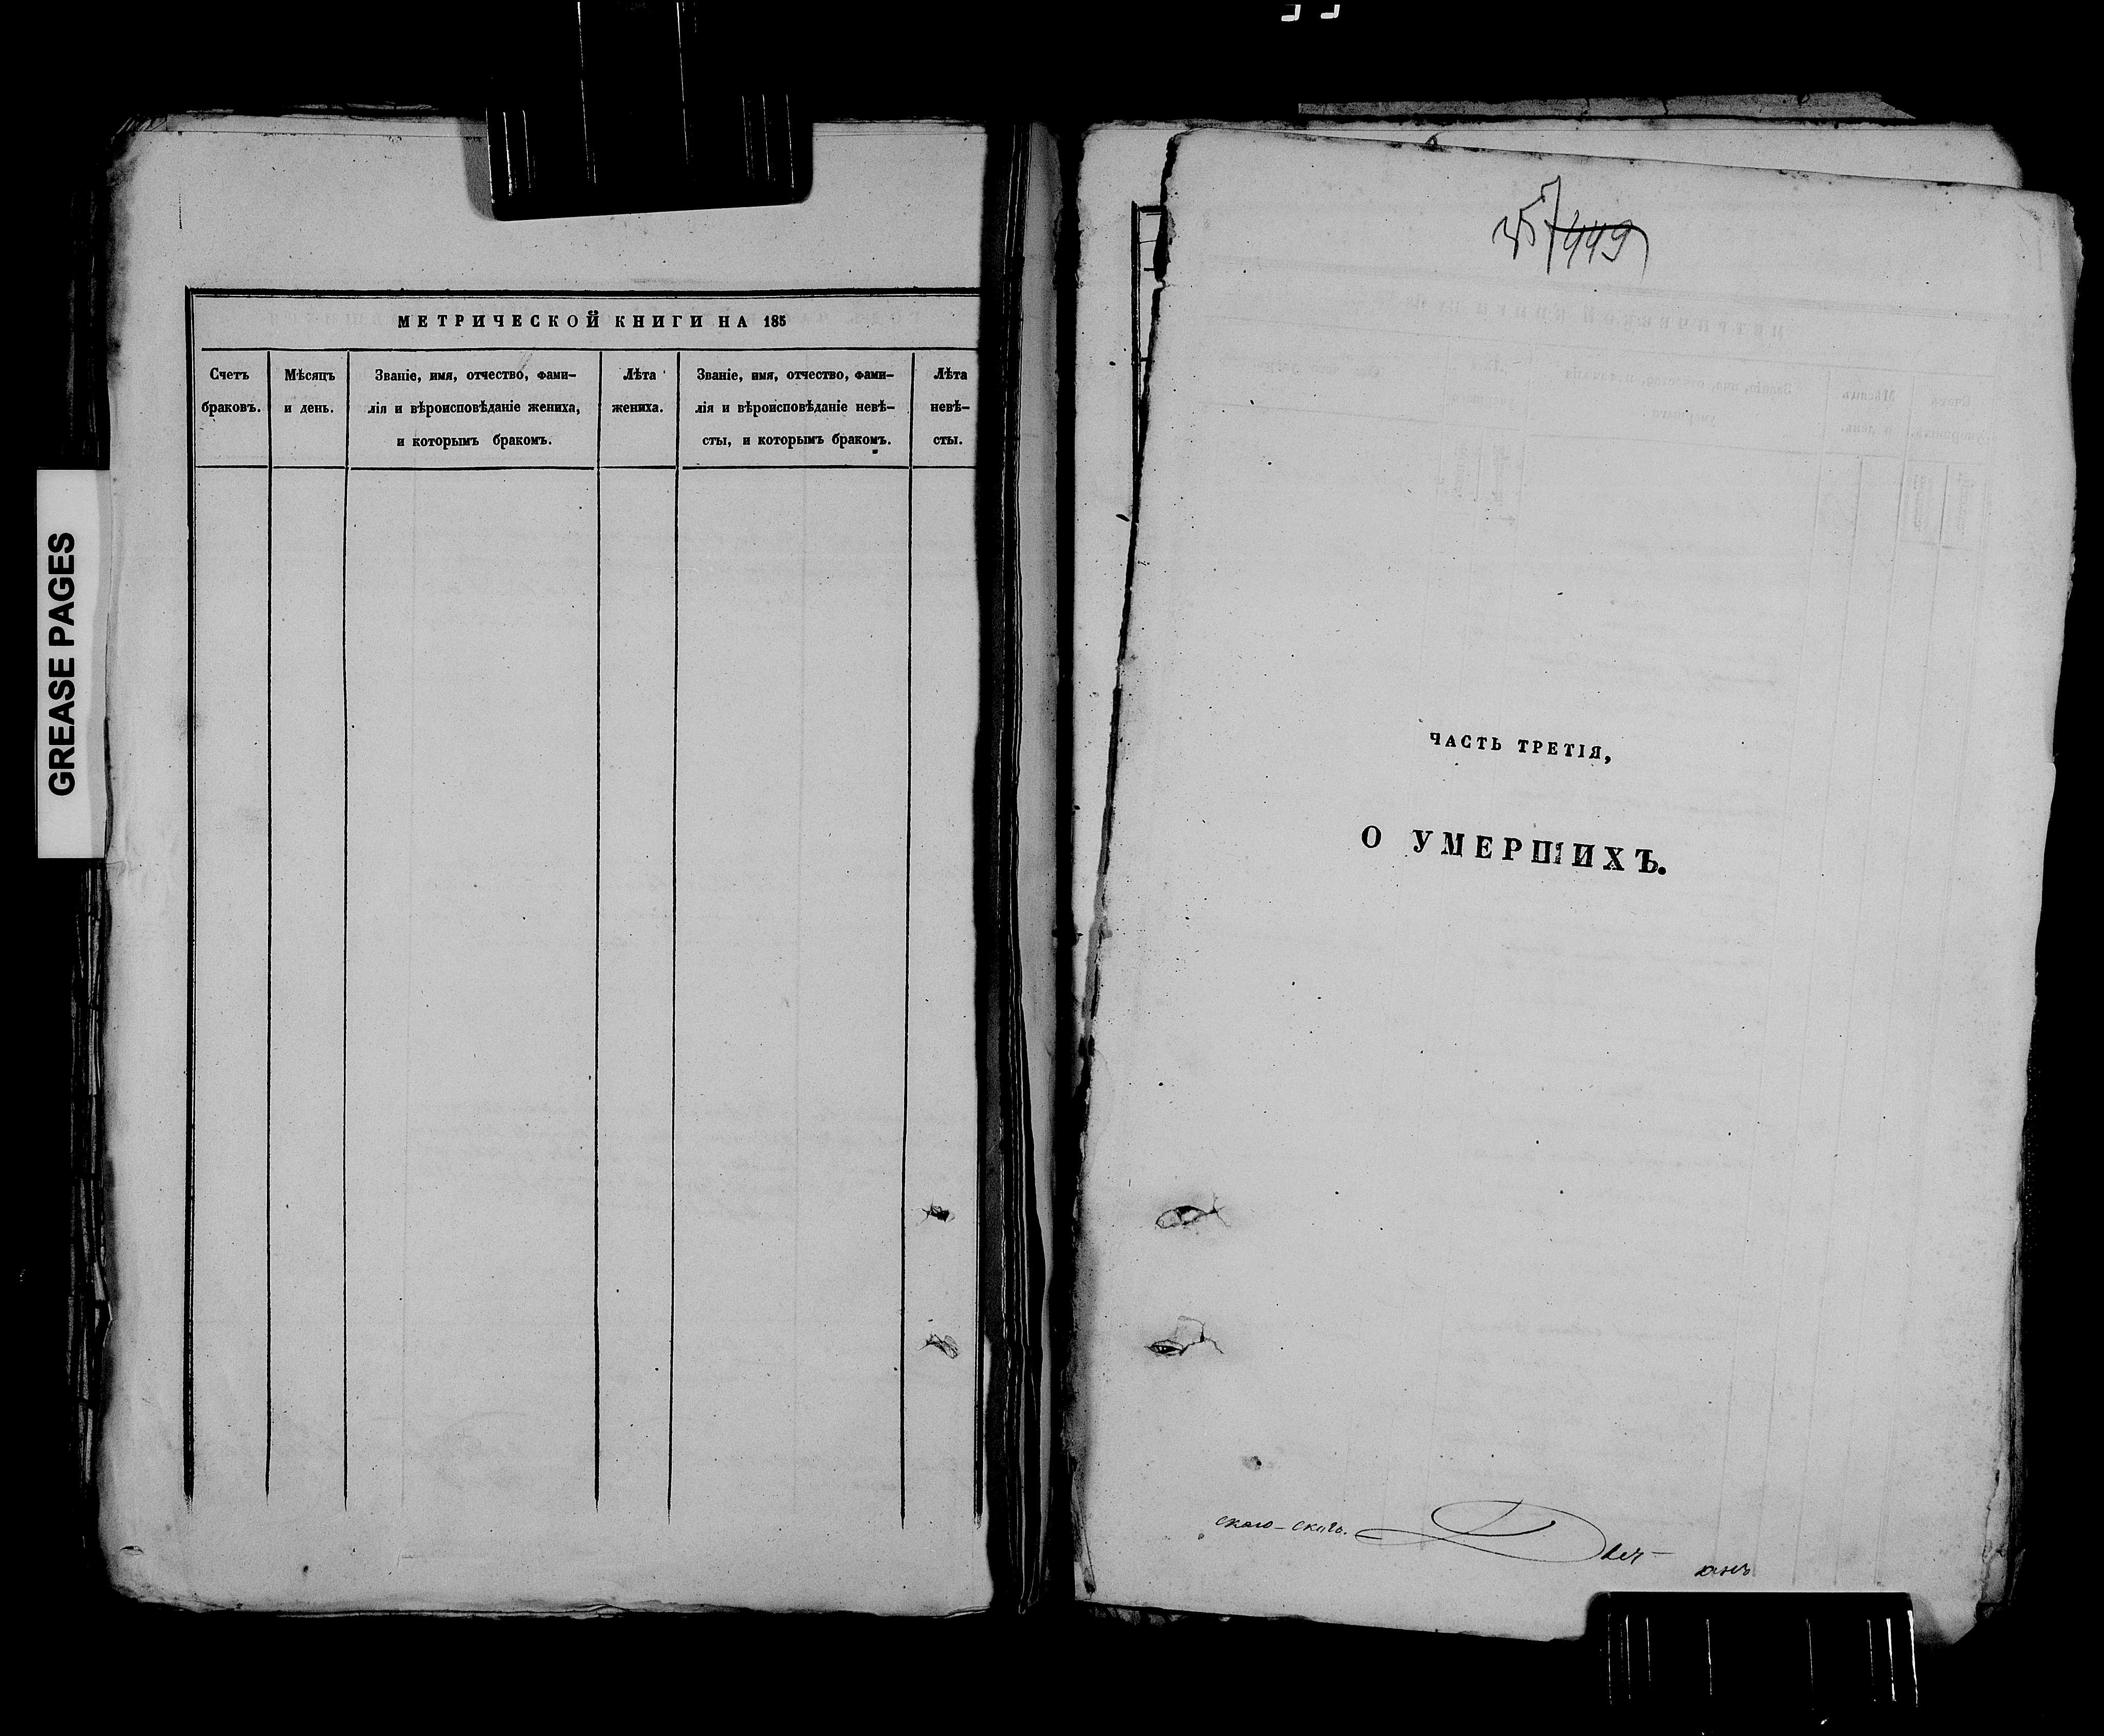 GREASE PAGES
МЕТРИЧЕСКОЙ КНИГИ НА 185
Счетъ браковъ.
Мѣсяцъ и день.
Званіе, имя, отчество, фами-
лія и вѣроисповѣданіе жениха,
и которымъ бракомъ.
Лѣта жениха.
Званіе, имя, отчество, фами-
лія и вѣроисповѣданіе невѣ-
сты, и которымъ бракомъ.
Лѣта невѣ-
сты.
449
ЧАСТЬ ТРЕТІЯ,
О УМЕРШИХЪ.
скаго-